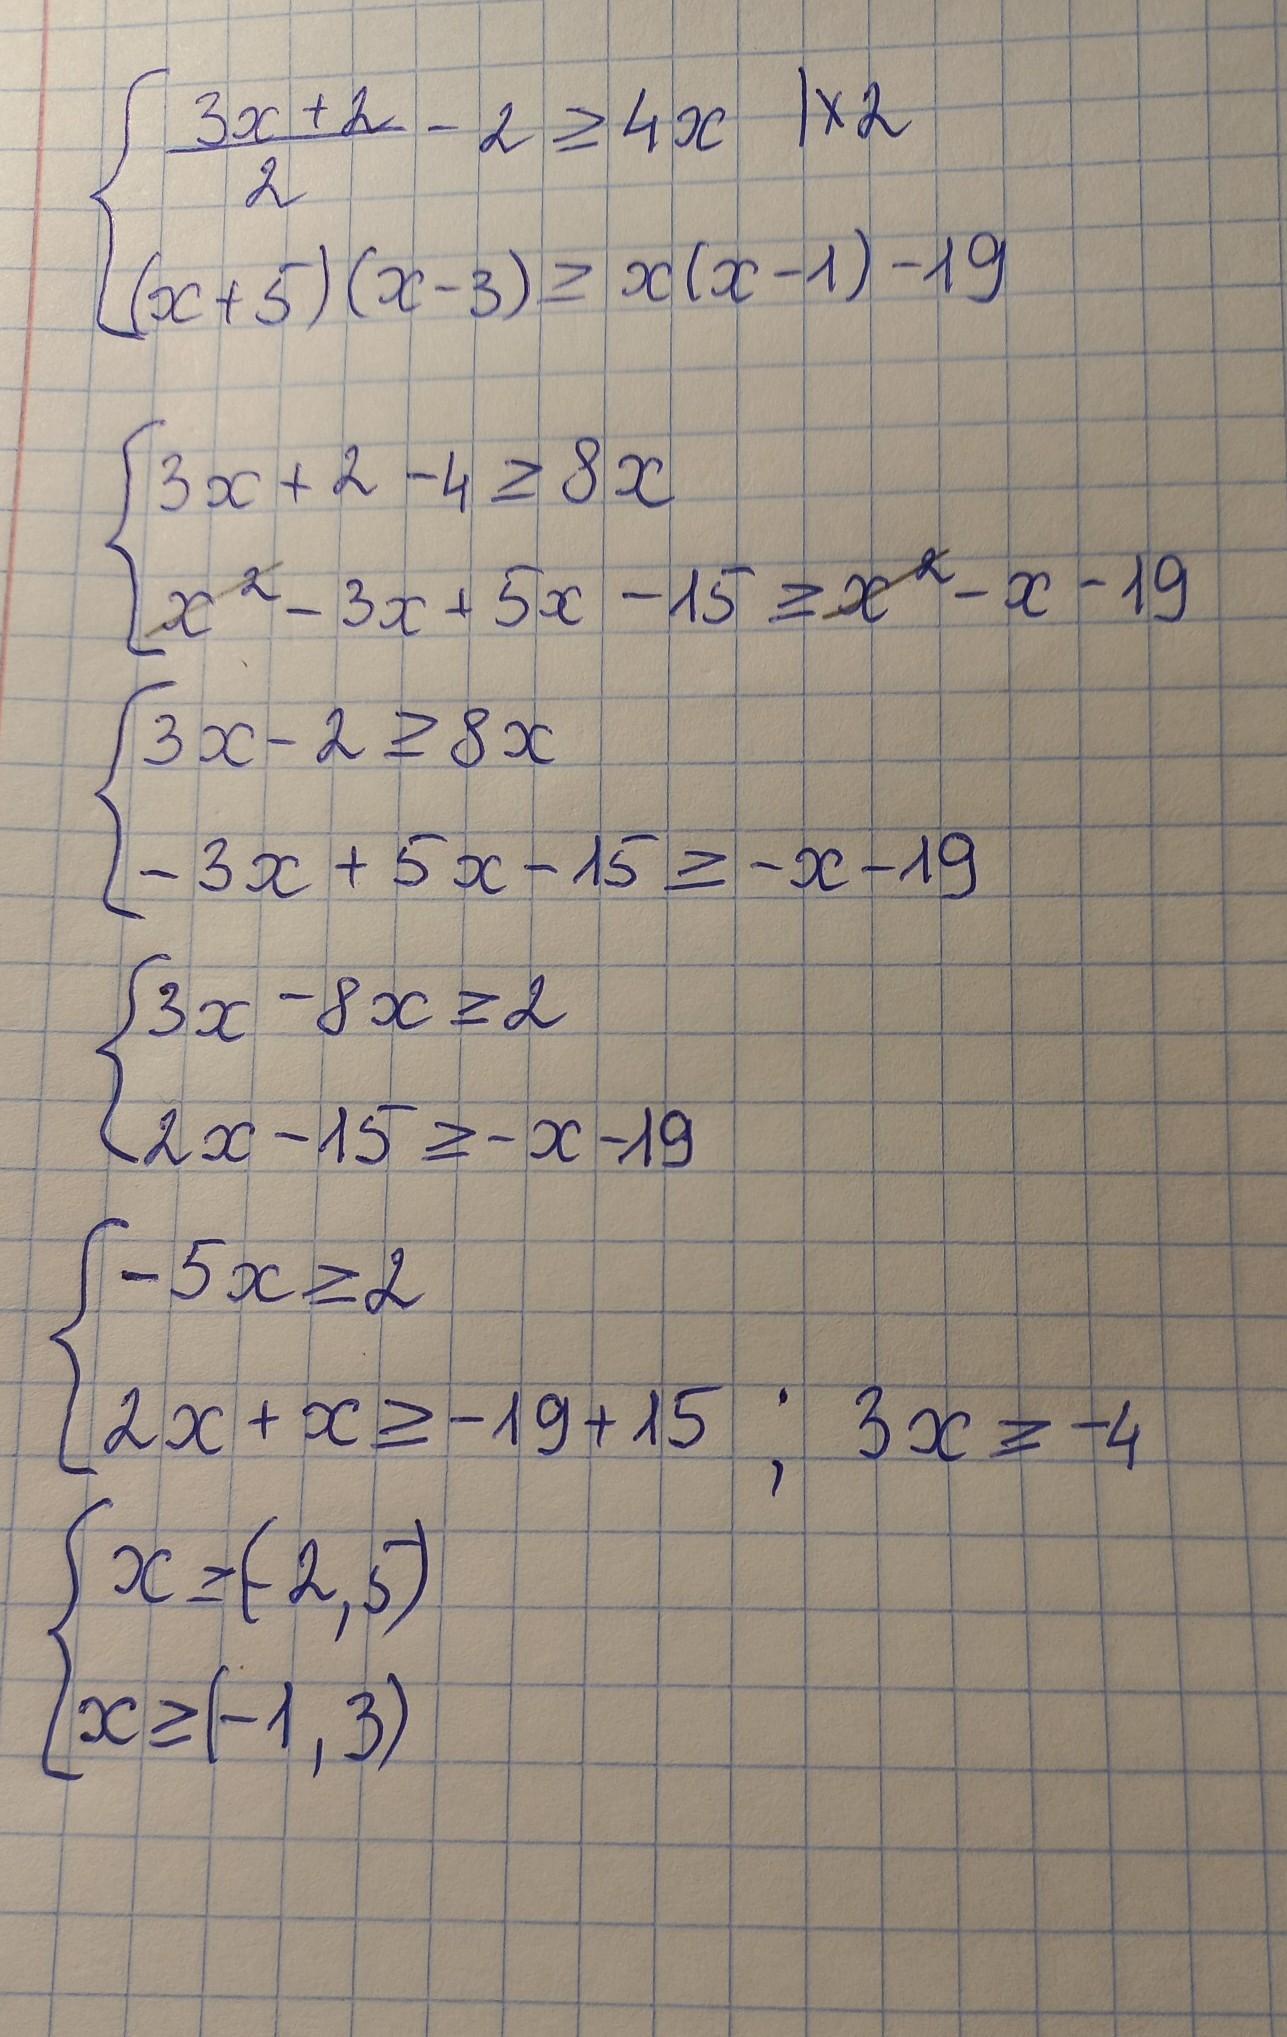 3x+2/2 - 2 ≥ 4x |×2
(x+5)(x-3) ≥ x(x-1)-19
3x+2-4 ≥ 8x
x²-3x+5x-15 ≥ x²-x-19
3x-2 ≥ 8x
-3x+5x-15 ≥ -x-19
3x-8x ≥ 2
2x-15 ≥ -x-19
-5x ≥ 2
2x+x ≥ -19+15 ; 3x ≥ -4
x ≥ (-2,5)
x ≥ (-1,3)